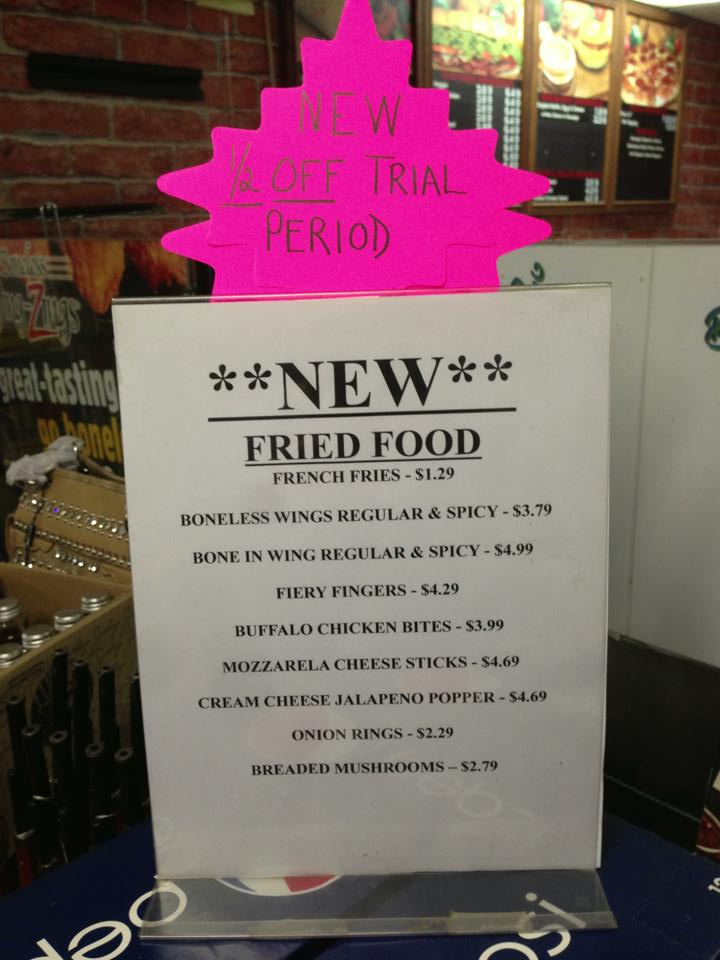 NEW
1/2 OFF TRIAL
PERIOD
**NEW**
FRIED FOOD
FRENCH FRIES - $1.29
BONELESS WINGS REGULAR & SPICY - $3.79
BONE IN WING REGULAR & SPICY - $4.99
FIERY FINGERS - $4.29
BUFFALO CHICKEN BITES - $3.99
MOZZARELA CHEESE STICKS - $4.69
CREAM CHEESE JALAPENO POPPER - $4.69
ONION RINGS - $2.29
BREADED MUSHROOMS – $2.79
great-tasting